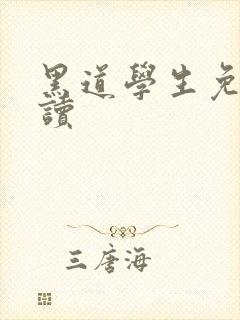 黑道學生免
讀
三唐海